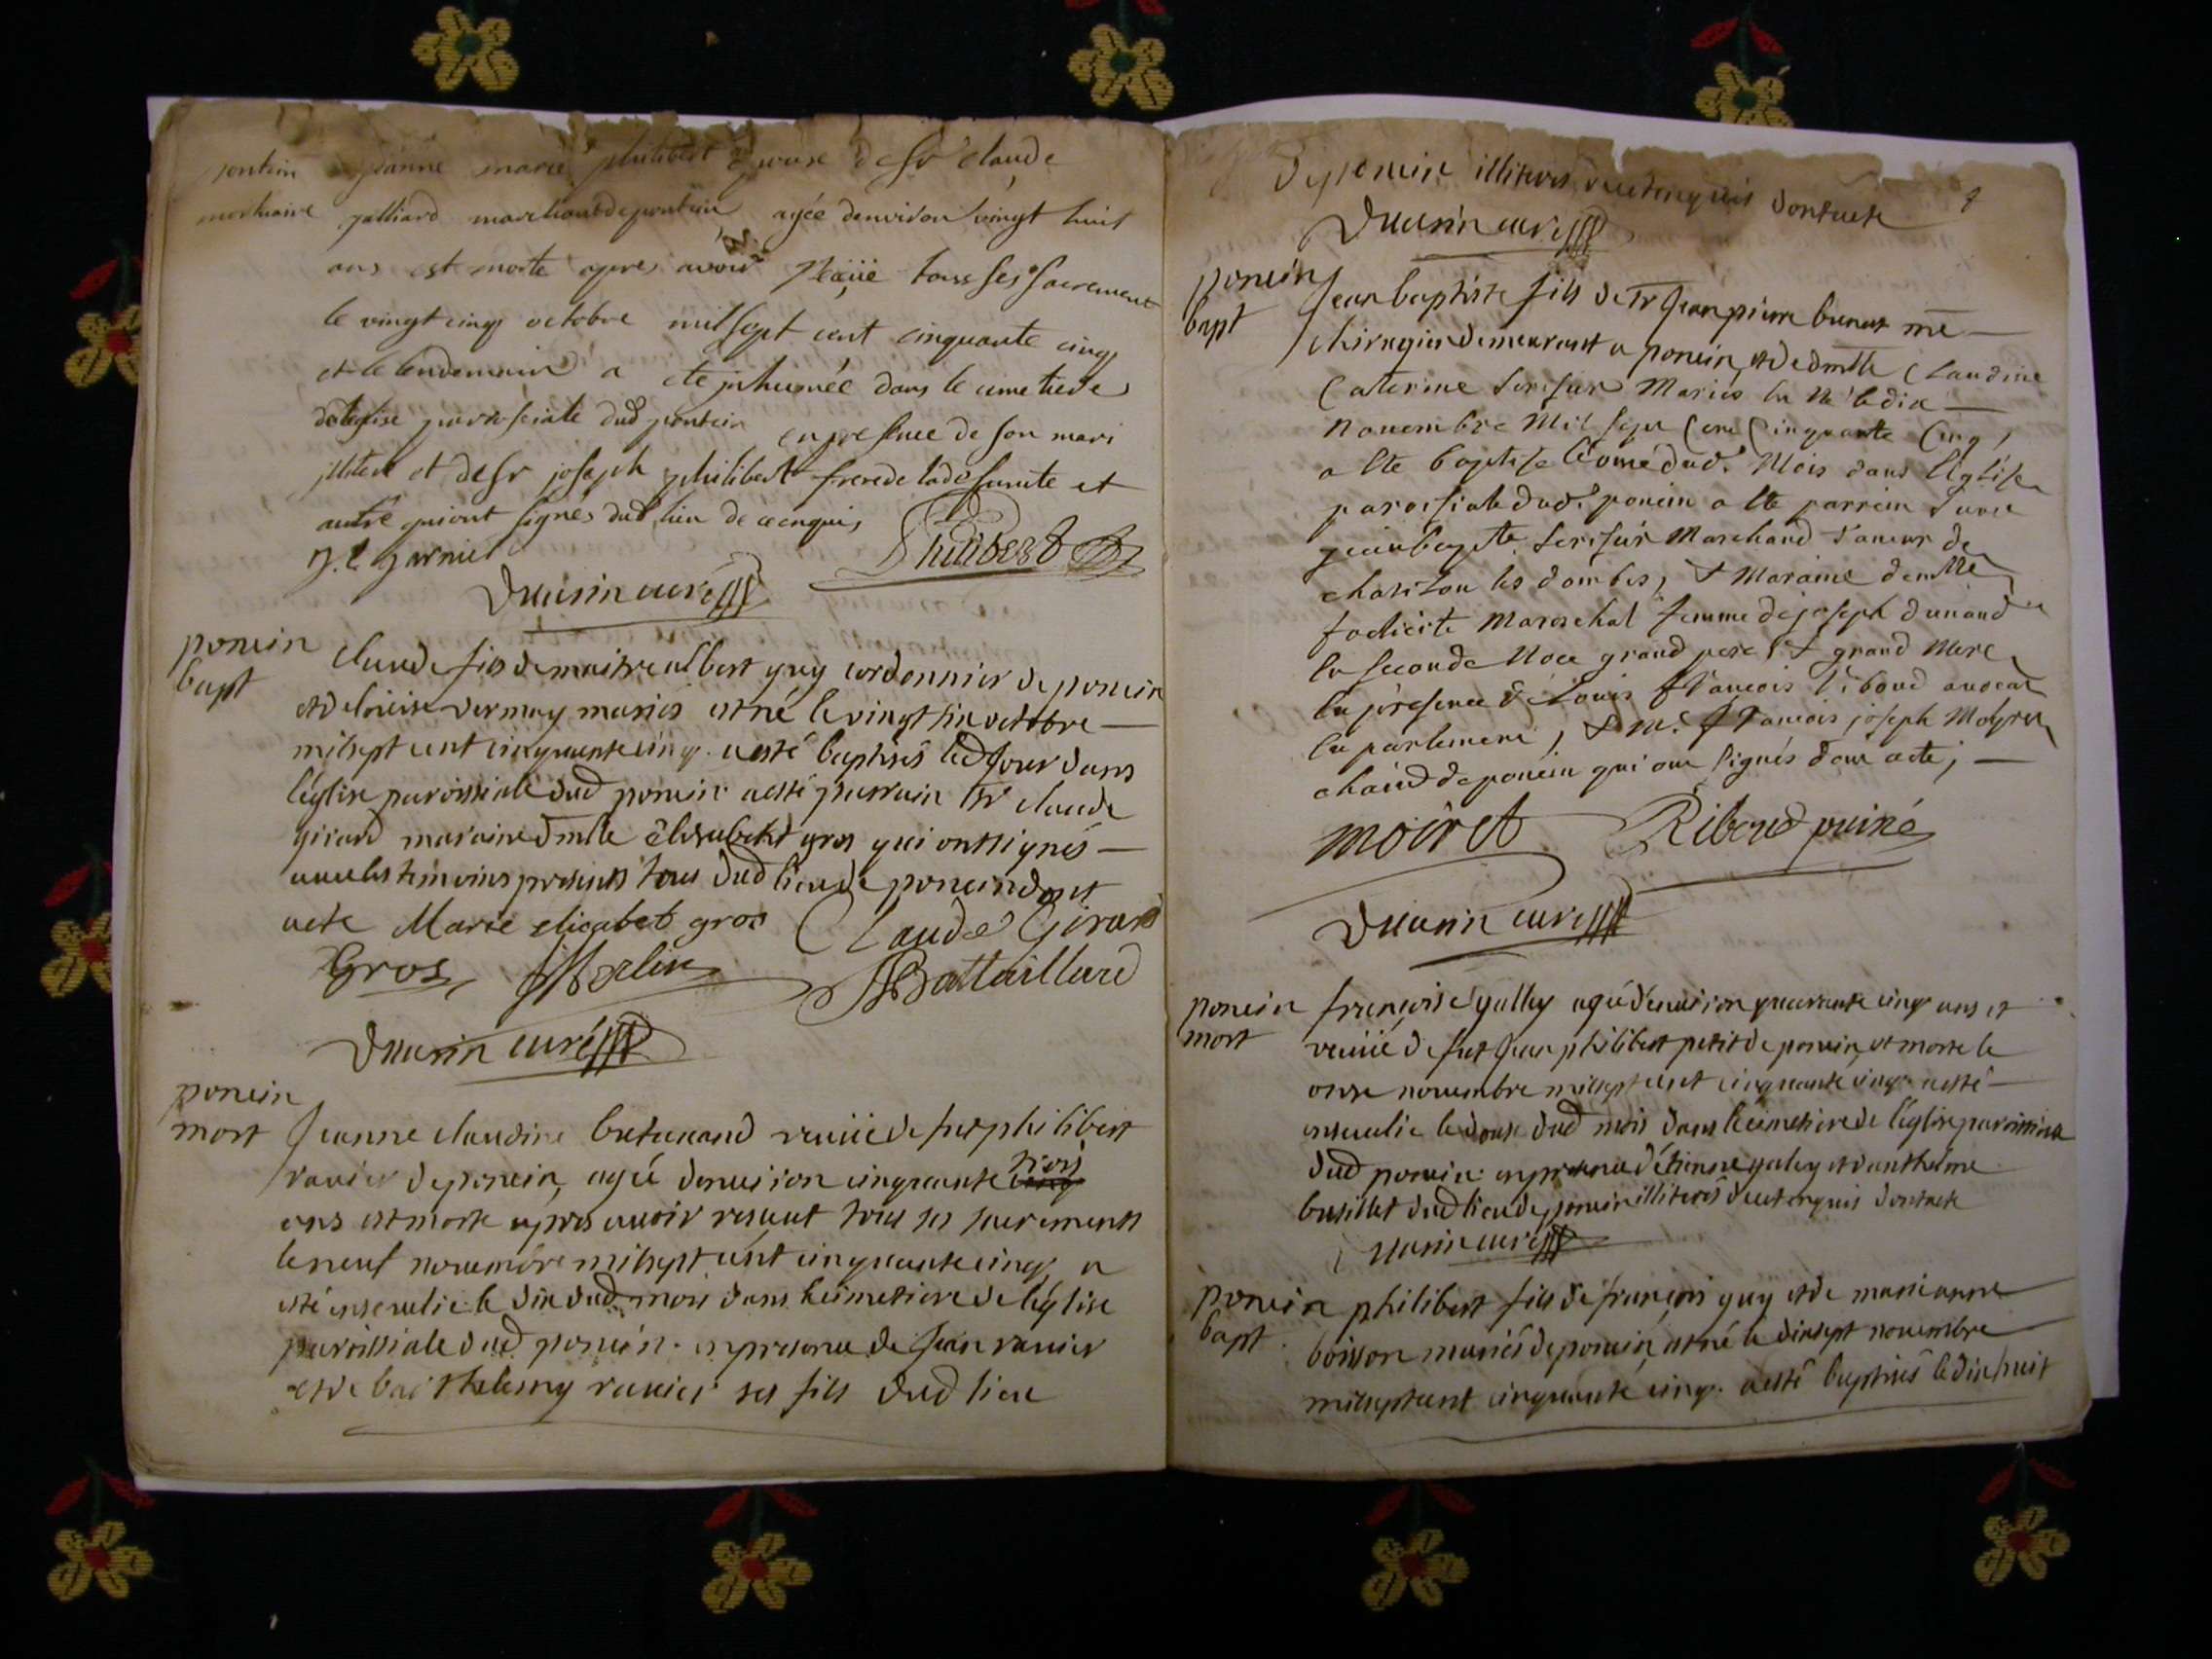 jeanne marie philibert epouse de sr claude
mortuaire galliard marchant de agée denviron vingt huit
ans est morte apres avoir tous ses sacrement
le vingt cinq octobre mil sept cent cinquante cinq
et le lendemain a ete inhumée dans le cimetiere
de leglise parrossiale dud en presence de son mari
et de sr joseph philibert frere de la defunte et
autre qui ont signés dud lieu de ce enquis
garnier Philibert
curé
poncin
bapt
claude fils de maitre albert guy cordonnier de poncin
et de mariés est né le vingt six octobre
mil sept cent cinquante cinq. a esté baptisés led jour dans
l'église paroissiale dud poncin. a esté parrain sr claude
girard maraine dmlle elisabeht gros qui ont signés
avec les témoins presents tous dud lieu de poncin dont
acte Marie elizabet gros Claude Girard
Gros, Battaillard
curé
poncin
mort Jeanne claudine veuüe de fut philibert
ravier de poncin, agée denviron cinquante trois
ans est morte apres avoir resçut tous ses sacrements
le neuf novembre mil sept cent cinquante cinq, a
esté ensevelie le dix dud mois dans le cimetiere de l'église
paroissiale dud poncin. en presence de jean ravier
et de barthelemy ravier ses fils dud lieu
de poncin illiterés de ce enquis dont acte
curé
poncin
bapt
Jean baptiste fils de sr Jean pierre me
chirugien demeurant a poncin, et de dmlle Claudine
Caterine mariés est né le dix
novembre mil sept cent cinquante cinq,
a ete baptise le onze dud. mois dans l'églile
parossiale dud. poncin a ete parrein
jean bapte. marchand de
chatilon les dombes, & maraine demlle
foelicite mareschal femme de joseph dunand
en seconde noce grand pere & grand mere
en presence de Louis françois riboud avocat
en parlement, & me. françois joseph
de poncin qui ont signés dont acte;
moiret Riboud puiné
curé
poncin
mort
françoise galley agée d'environ quarante cinq ans et
veuüe de fut jean philibert petit de poncin, est morte le
onze novembre mil sept cent cinquante cinq. a esté
ensevelie le douze dud mois dans le cimetiere de l'église paroissiale
dud poncin. en presence d'étienne galey et d'anthelme
dud lieu de poncin illiterés de ce enquis dont acte
curé
poncin
bapt.
philibert fils de françois guy et de marianne
boisson mariés de poncin, est né le dix sept novembre
mil sept cent cinquante cinq. a esté baptisés le dix huit